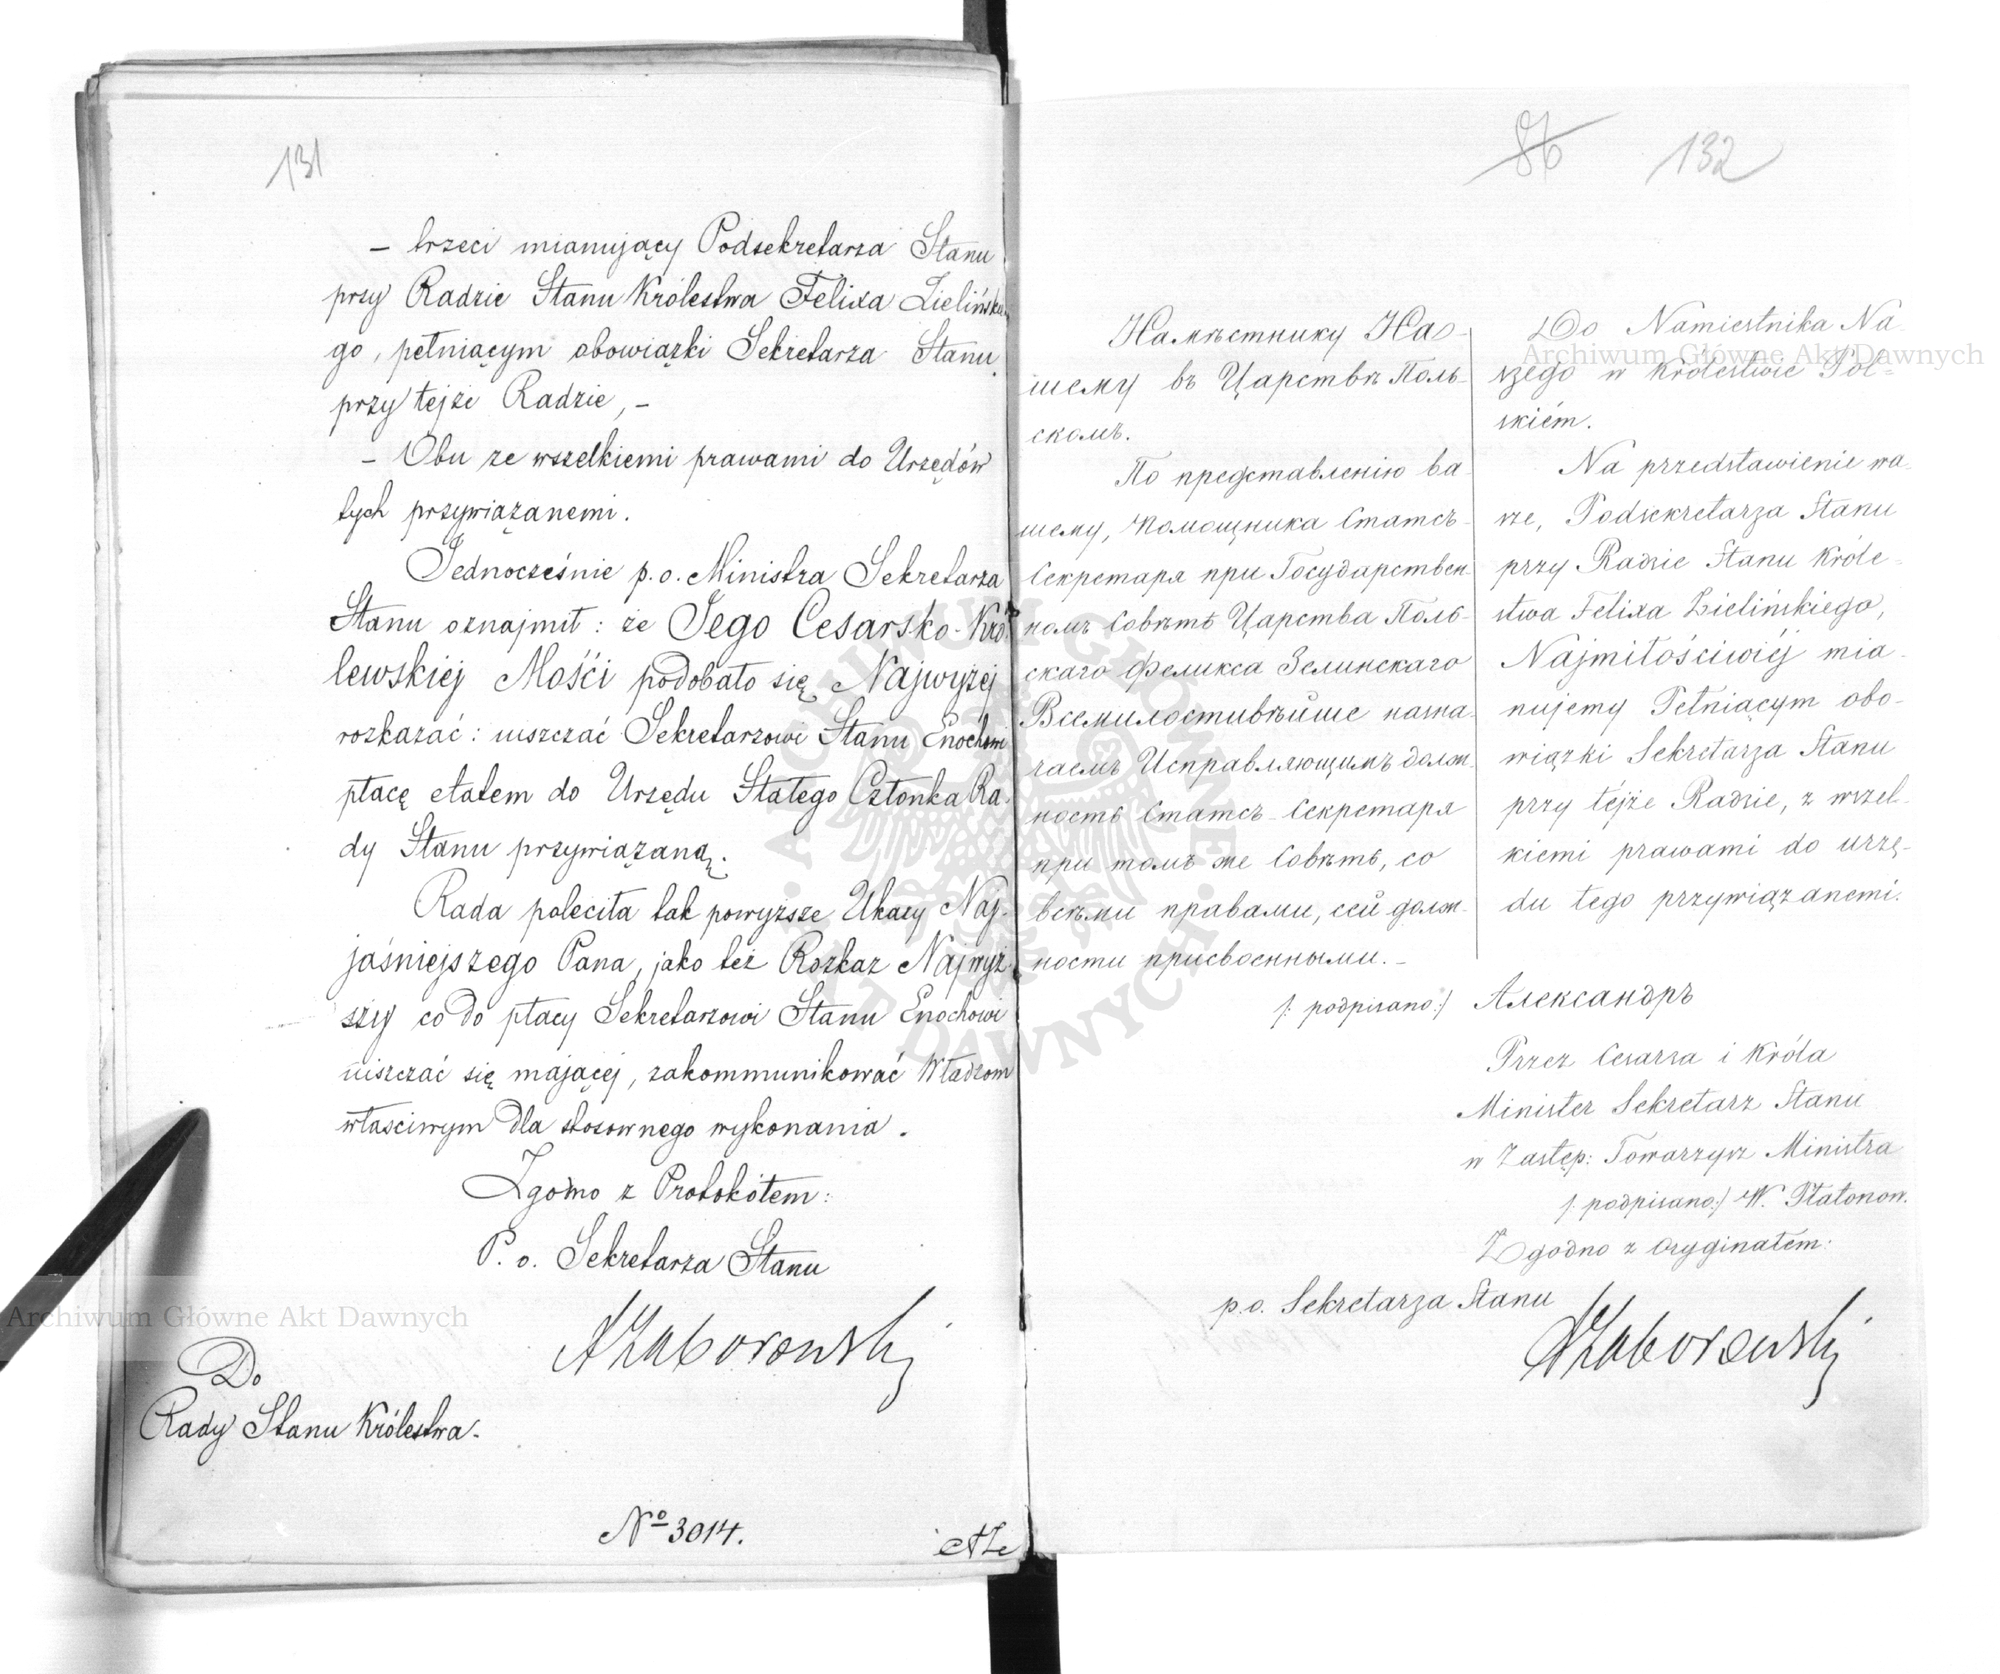 131
– trzeci mianujący Podsekretarza Stanu
przy Radzie Stanu Królestwa Felixa Zielińskie
go, pełniącym obowiązki Sekretarza Stanu
przy tejże Radzie, –
– Obu ze wszelkiemi prawami do Urzędów
tych przywiązanemi.
Jednocześnie p. o. Ministra Sekretarza
Stanu oznajmił: że Jego Cesarsko-Kró
lewskiej Mości podobało się Najwyżej
rozkazać: uiszczać Sekretarzowi Stanu Enochowi
płacę etatem do Urzędu Stałego Członka Ra-
dy Stanu przywiązaną.
Rada poleciła tak powyższe Ukazy Naj-
jaśniejszego Pana, jako też Rozkaz Najwyż
szy co do płacy Sekretarzowi Stanu Enochowi
uiszczać się mającej, zakommunikować Władzom
właściwym dla stosownego wykonania.
Zgodno z Protokółem:
P. o. Sekretarza Stanu
AZaborowski
Do
Rady Stanu Królestwa.
Nº 3014.
86 132
Намѣстнику На-
шему въ Царствѣ Поль-
скомъ.
По представленію ва-
шему, Помощника Статсъ-
Секретаря при Государствен-
номъ Совѣтѣ Царства Поль-
скаго Феликса Зелинскаго
Всемилостивѣйше назна-
чаемъ Исправляющимъ долж-
ность Статсъ-Секретаря
при томъ же Совѣтѣ, со
всѣми правами, сей долж-
ности присвоенными. –
Do Namiestnika Na
szego w Królestwie Pol-
skiém.
Na przedstawienie wa-
sze, Podsekretarza Stanu
przy Radzie Stanu Króle-
stwa Felixa Zielińskiego,
Najmiłościwiéj mia-
nujemy Pełniącym obo-
wiązki Sekretarza Stanu
przy tejże Radzie, z wszel-
kiemi prawami do urzę-
du tego przywiązanemi.
/: podpisano :/ Александръ
Przez Cesarza i Króla
Minister Sekretarz Stanu
w Zastęp: Towarzysz Ministra
/: podpisano :/ W. Płatonow.
Zgodno z Oryginałem:
p. o. Sekretarza Stanu
AZaborowski
Archiwum Główne Akt Dawnych
Archiwum Główne Akt Dawnych
ARCHIWUM GŁÓWNE AKT DAWNYCH